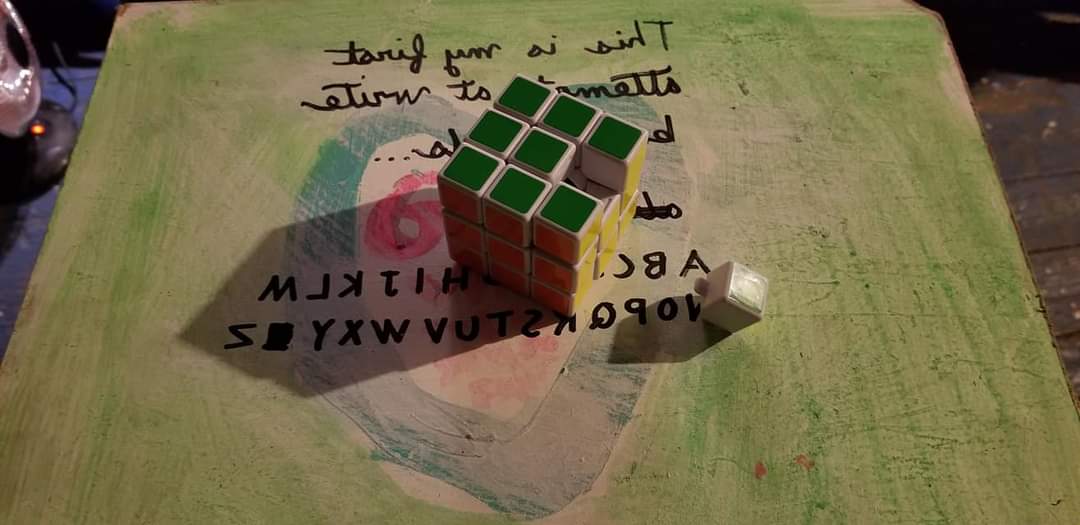 This is my first
attempt to write
ABC HIJKLM
NOPQRSTUVWXY Z